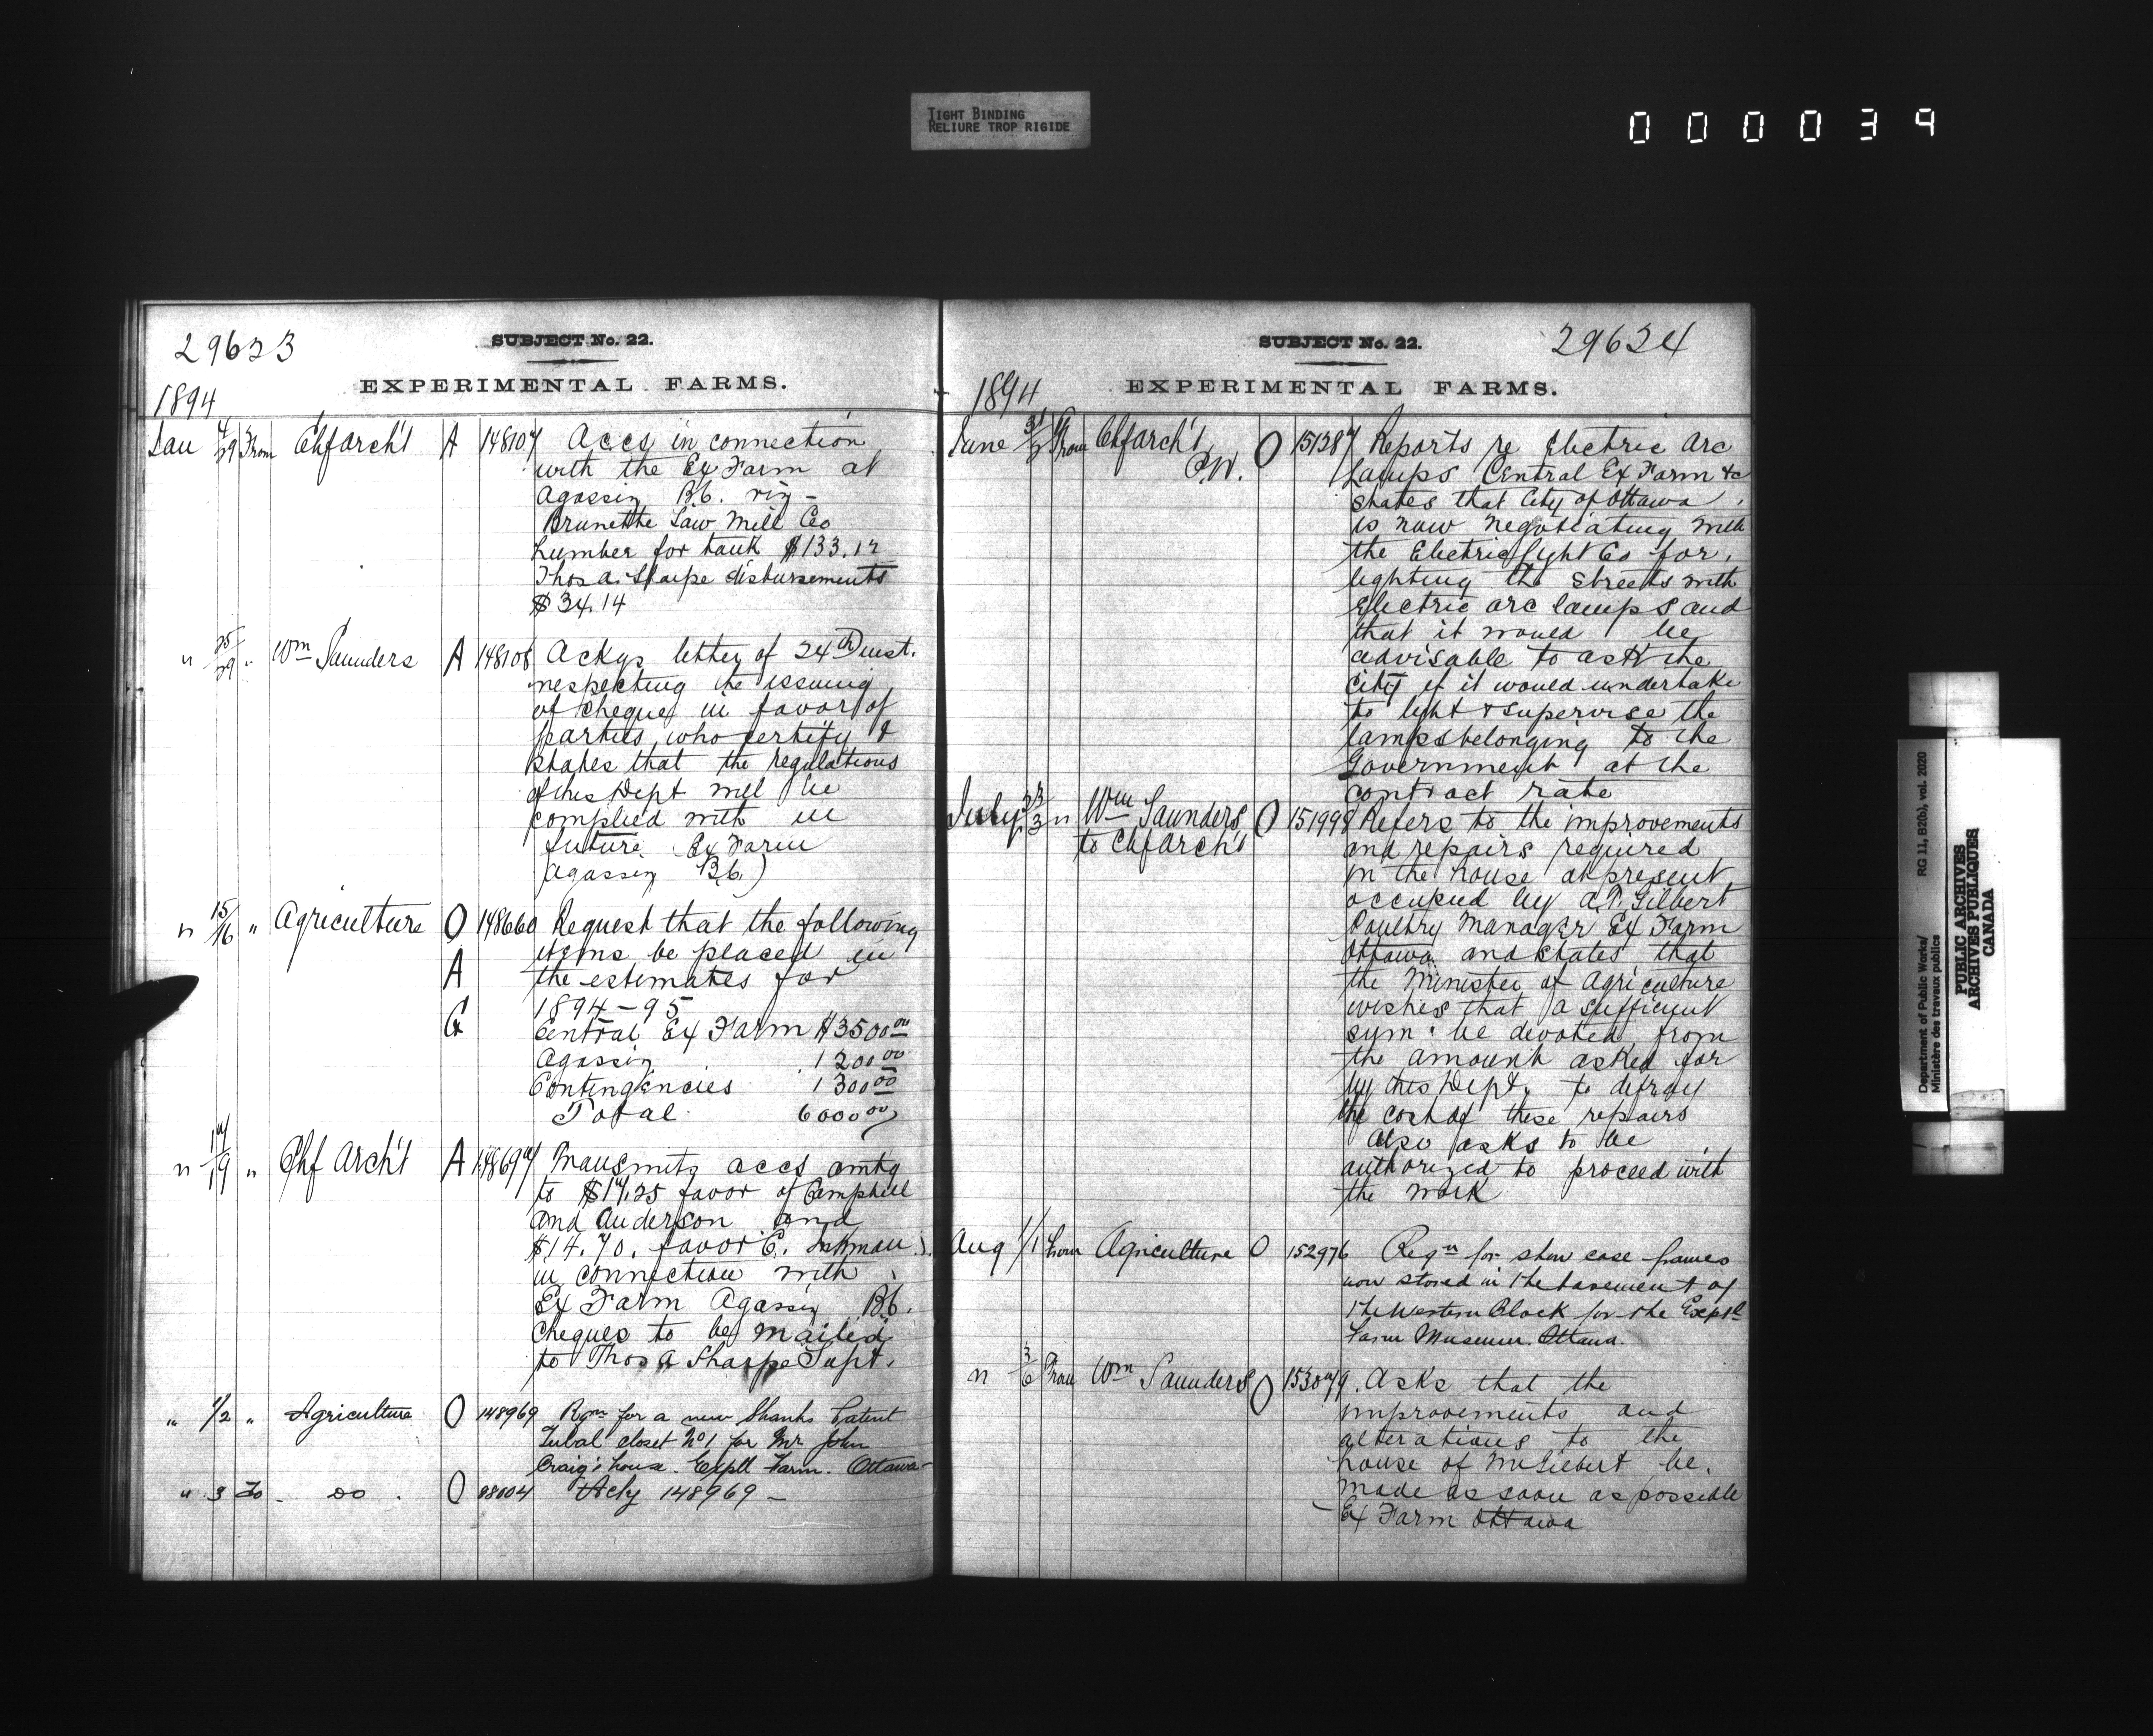 TIGHT BINDING
RELIURE TROP RIGIDE
000039
29623
SUBJECT No. 22.
EXPERIMENTAL FARMS.
1894
Jan 29 From Chf arch't A 148107 Accs in connection
with the Ex Farm at
Agassiz B.C. viz -
Brunette Saw Mill Co
Lumber for tank $133.12
Thos a. Sharpe disbursements
$34.14
" 25/29 " Wm Saunders A 148108 Ackgs letter of 24th inst.
respecting the issuing
of cheques in favor of
parties who certify &
states that the regulations
of this Dept will be
complied with in
future. (Ex Farm
Agassiz B.C.)
" 15/16 " Agriculture O 148660 Request that the following
A items be placed in
the estimates for
1894-95
G Central Ex Farm $3500 00
Agassiz 1200 00
Contingencies 1300 00
Total 6000 00
" 17/19 " Chf Arch't A 148697 Transmits accs amtg
to $17.25 favor of Campbell
and Anderson and
$14.70. favor E.
in connection with
Ex Farm Agassiz B.C.
Cheques to be mailed
to Thos A Sharpe Supt.
" 1/2 " Agriculture O 148969 Rqn for a new Shanks Patent
Tubal closet No 1 for Mr John
Craig's house. Exptl Farm. Ottawa -
" 3 To - do . O 98004 Ackg 148969 -
SUBJECT No. 22.
29624
EXPERIMENTAL FARMS.
1894
June From Chf arch't O 151387 Reports re Electric Arc
P.W. Lamps Central Ex Farm &c
states that City of Ottawa
is now negotiating with
the Electric light Co for
lighting the streets with
Electric arc lamps and
that it would be
advisable to ask the
City if it would undertake
to light & supervise the
lamps belonging to the
Government at the
contract rate
July " Wm Saunders O 151998 Refers to the improvements
to Chf Arch't and repairs required
in the house at present
occupied by A.G. Gilbert
Poultry Manager Ex Farm
Ottawa and states that
the Minister of Agriculture
wishes that a sufficient
sum be devoted from
the amount asked for
by this Dept. to defray
the cost of these repairs
Also asks to be
authorized to proceed with
the work
Aug 1/1 from Agriculture O 152976 Reqn for show case frames
now stored in the basement of
the Western Block for the Exptl
Farm Museum. Ottawa.
" 3/6 From Wm Saunders O 153079. Asks that the
improvements and
alterations to the
house of Mr Gilbert be
made as soon as possible
- Ex Farm Ottawa
Department of Public Works/ RG 11, B2(b), vol. 2020
Ministère des travaux publics
PUBLIC ARCHIVES
ARCHIVES PUBLIQUES
CANADA